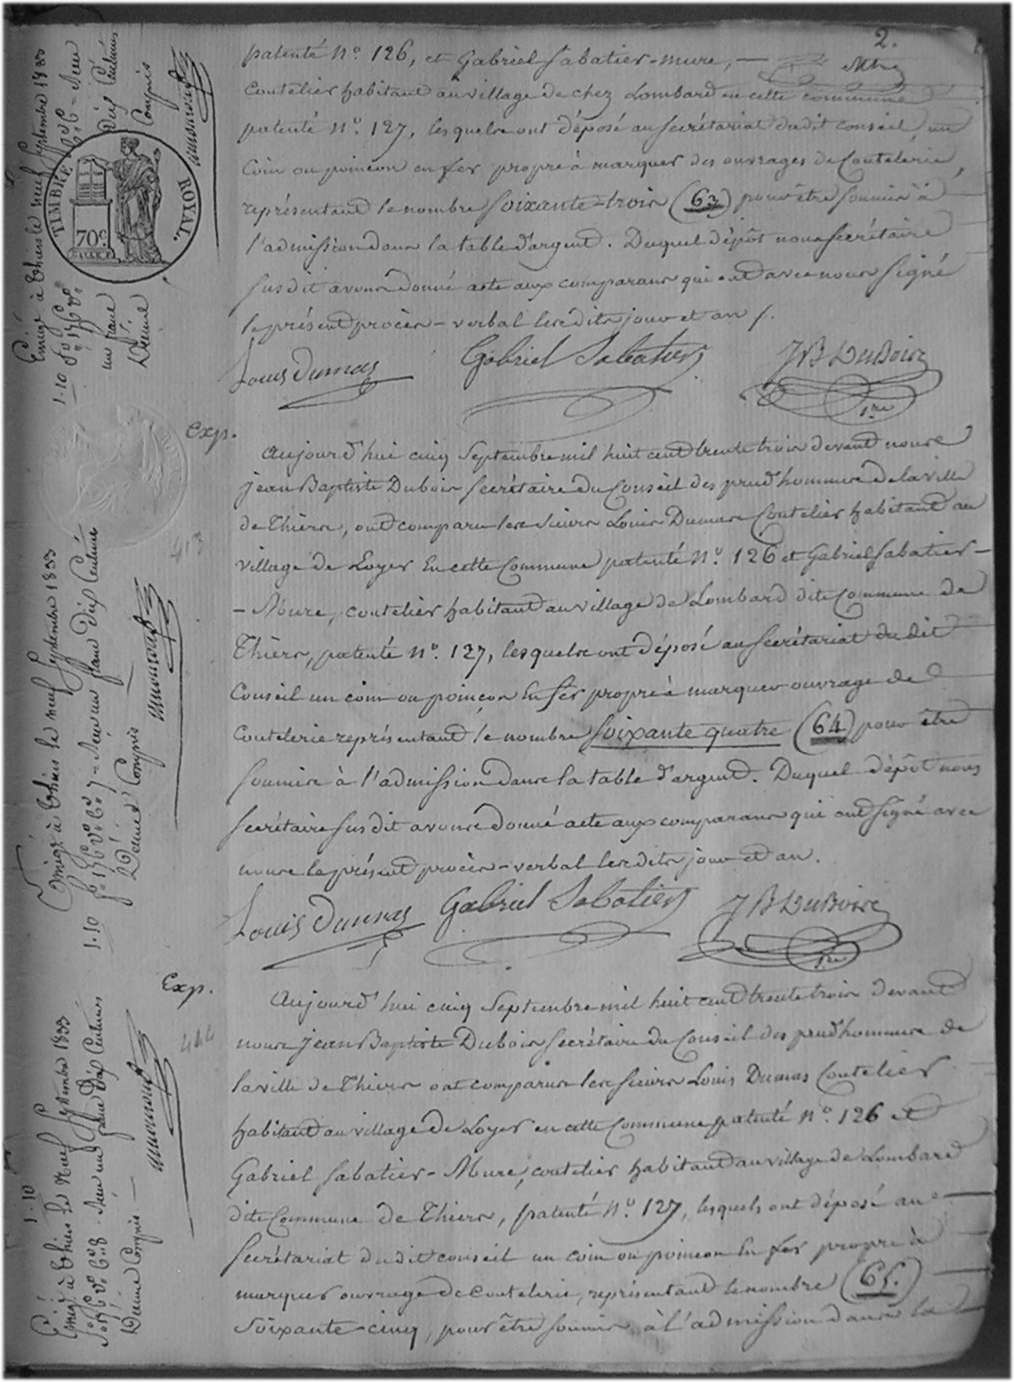 2.
patenté N.º 126, et Gabriel Sabatier-mure, —
Coutelier habitant au village de chez Lombard en cette commune
patenté N.º 127, lesquels ont déposé au secrétariat dudit conseil, un
Coin ou poincon en fer propre à marquer des ouvrages de Coutelérie,
représentant le nombre soixante-trois (63) pour être soumis à
l'admission dans la table d'argent. Duquel dépôt nous secrétaire
susdit avons donné acte aux comparans qui ont avec nous signé
le présent procès-verbal lesdits jour et an /.
Louis Dumas Gabriel Sabatier J B DuBois
Exp.
Aujourd'hui cinq Septembre mil huit cent trente trois devant nous
jean Baptiste Dubois secrétaire du Conseil des prud'hommes de la ville
de Thiers, ont comparu les sieurs Louis Dumas Coutelier habitant au
village de Loyer en cette Commune patenté N.º 126 et Gabriel Sabatier-
-Mure, coutelier habitant au village de Lombard dite Commune de
Thiers, patenté N.º 127, lesquels ont déposé au secrétariat du dit
Conseil un coin ou poinçon en fer propre à marquer ouvrage de
Coutelerie représentant le nombre soixante quatre (64) pour être
soumis à l'admission dans la table d'argent. Duquel dépôt nous
secrétaire susdit avons donné acte aux comparans qui ont signé avec
nous le présent procès-verbal lesdits jour et an.
Louis Dumas Gabriel Sabatier J B DuBois
Exp.
Aujourd'hui cinq Septembre mil huit cent trente trois devant
nous Jean Baptiste Dubois secrétaire du Conseil des prud'hommes de
la ville de Thiers ont comparus les sieurs Louis Dumas Coutelier
habitant au village de Loyer en cette Commune patenté N.º 126 et
Gabriel Sabatier-Mure, coutelier habitant au village de Lombard
dite Commune de Thiers, patenté N.º 127, lesquels ont déposé au
secrétariat du dit conseil un coin ou poincon en fer propre à
marquer ouvrage de coutelerie, représentant le nombre (65.)
soixante-cinq, pour être soumis à l'admission dans la
TIMBRE ROYAL.
70 c
Enregé à Thiers le neuf Septembre 1833
1-10
un franc
Décime
Dix Centimes
Compris
413
Enregé à Thiers le neuf Septembre 1833
1-10
un franc Dix Centimes
Décime Compris
414
Enregé à Thiers le neuf Septembre 1833
1-10
un franc Dix Centimes
Décime Compris